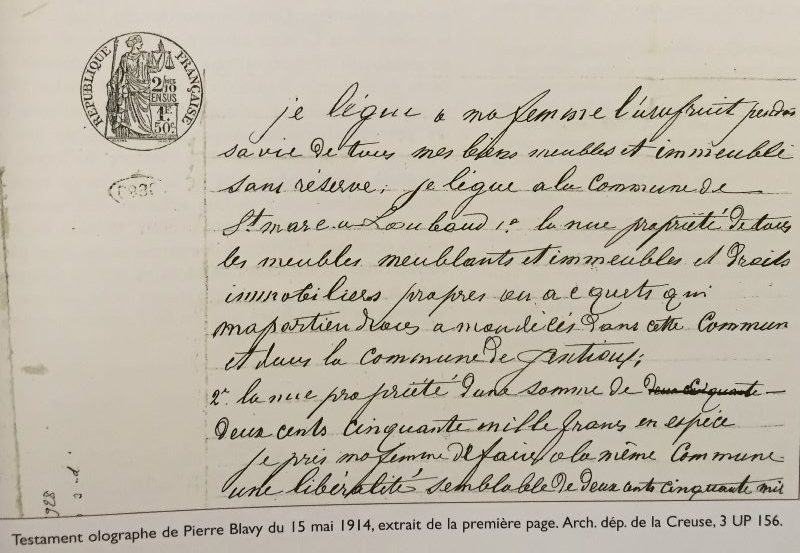 RÉPUBLIQUE FRANÇAISE
2/10
EN SUS
1F
50c
je lègue a ma femme l'usufruit pendant
sa vie de tous mes biens meubles et immeuble
sans réserve; je lègue a la Commune de
St marc a Loubaud 1º la nue propriété de tous
les meubles meublants et immeubles et droits
immobiliers propres ou acquets qui
mapartiendrons a mon décès dans cette Commun
et dans la Commune de Gentioux;
2º la nue propriété dune somme de deux cinquante
deux cents cinquante mille francs en espèce
je pris ma femme de faire a la même Commune
une libéralité semblable de deux cents cinquante mil
Testament olographe de Pierre Blavy du 15 mai 1914, extrait de la première page. Arch. dép. de la Creuse, 3 UP 156.